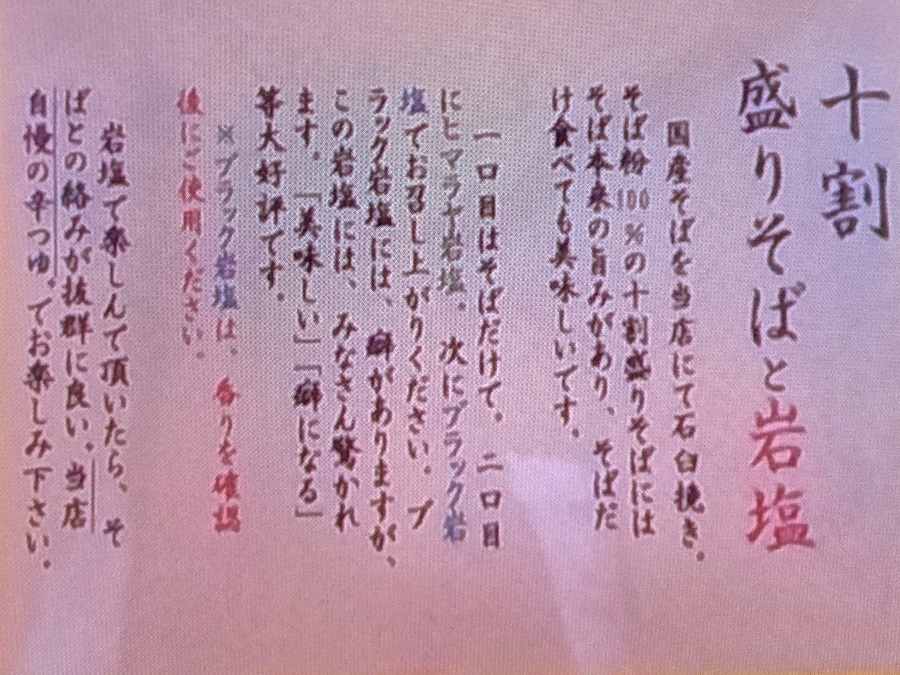 十割
盛りそばと岩塩
国産そばを当店にて石臼挽き。
そば粉100%の十割盛りそばには
そば本来の旨みがあり、そばだ
け食べても美味しいです。
一口目はそばだけで。二口目
にヒマラヤ岩塩。次にブラック岩
塩でお召し上がりください。ブ
ラック岩塩には、癖がありますが、
この岩塩には、みなさん驚かれ
ます。「美味しい」「癖になる」
等大好評です。
※ブラック岩塩は、香りを確認
後にご使用ください。
岩塩で楽しんで頂いたら、そ
ばとの絡みが抜群に良い。当店
自慢の辛つゆ。でお楽しみ下さい。